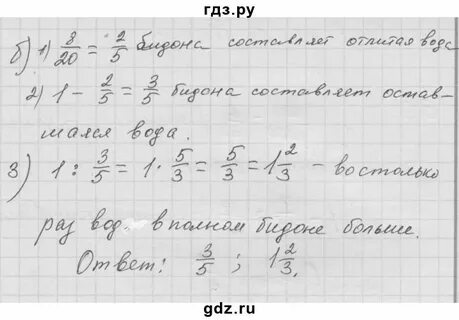 гдз.ру
б) 1) 8/20 = 2/5 бидона составляет отлитая вода
2) 1 - 2/5 = 3/5 бидона составляет остав-
шаяся вода.
3) 1 : 3/5 = 1 · 5/3 = 5/3 = 1 2/3 - во столько
раз вод. в полном бидоне больше.
Ответ: 3/5 ; 1 2/3.
gdz.ru